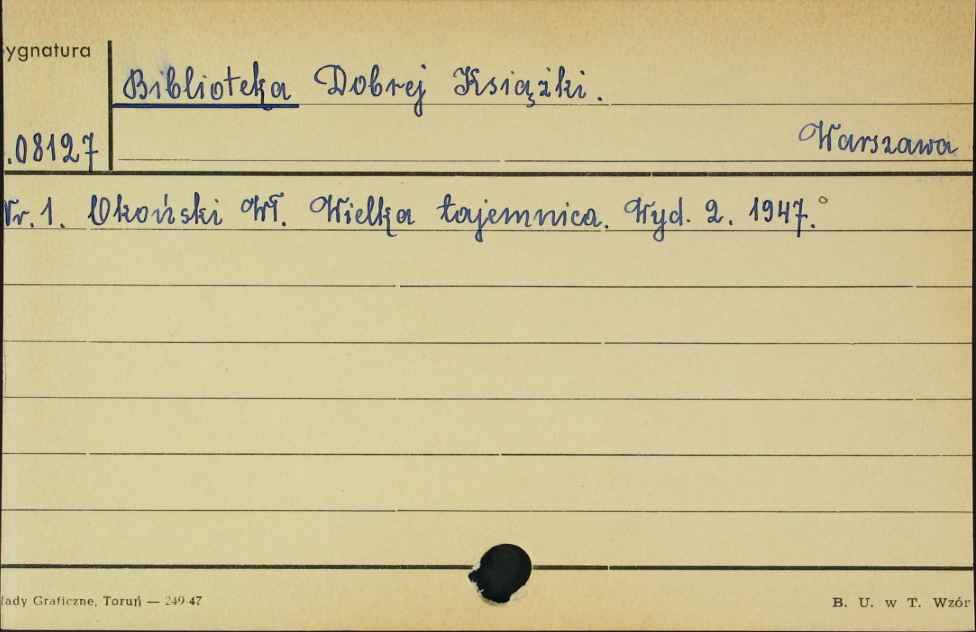 ygnatura
Biblioteka Dobrej Książki.
.08127
Warszawa
Nr. 1. Okoński Wł. Wielka tajemnica. Wyd. 2. 1947.
łady Graficzne, Toruń — 249-47
B. U. w T. Wzór